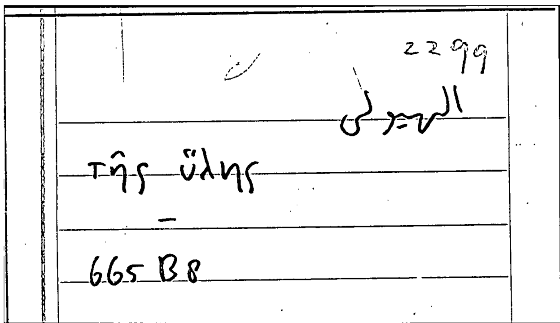 2299
الهيولى
τῆς ὕλης
–
665 B 8